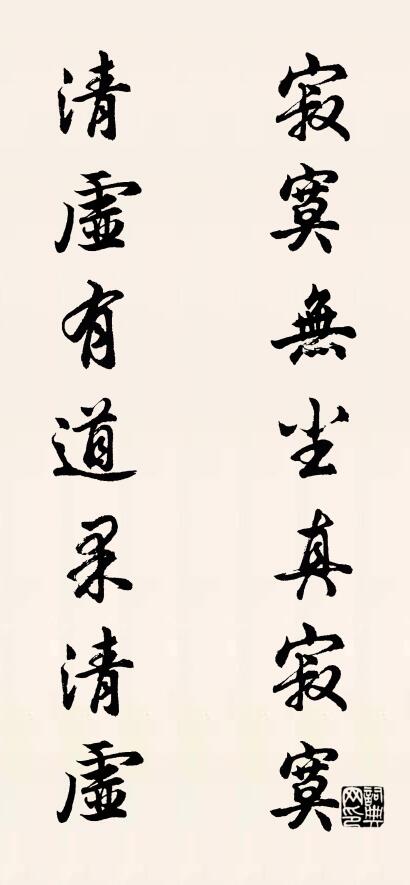 寂寞無尘真寂寞
清虛有道果清虛
詞典
网印